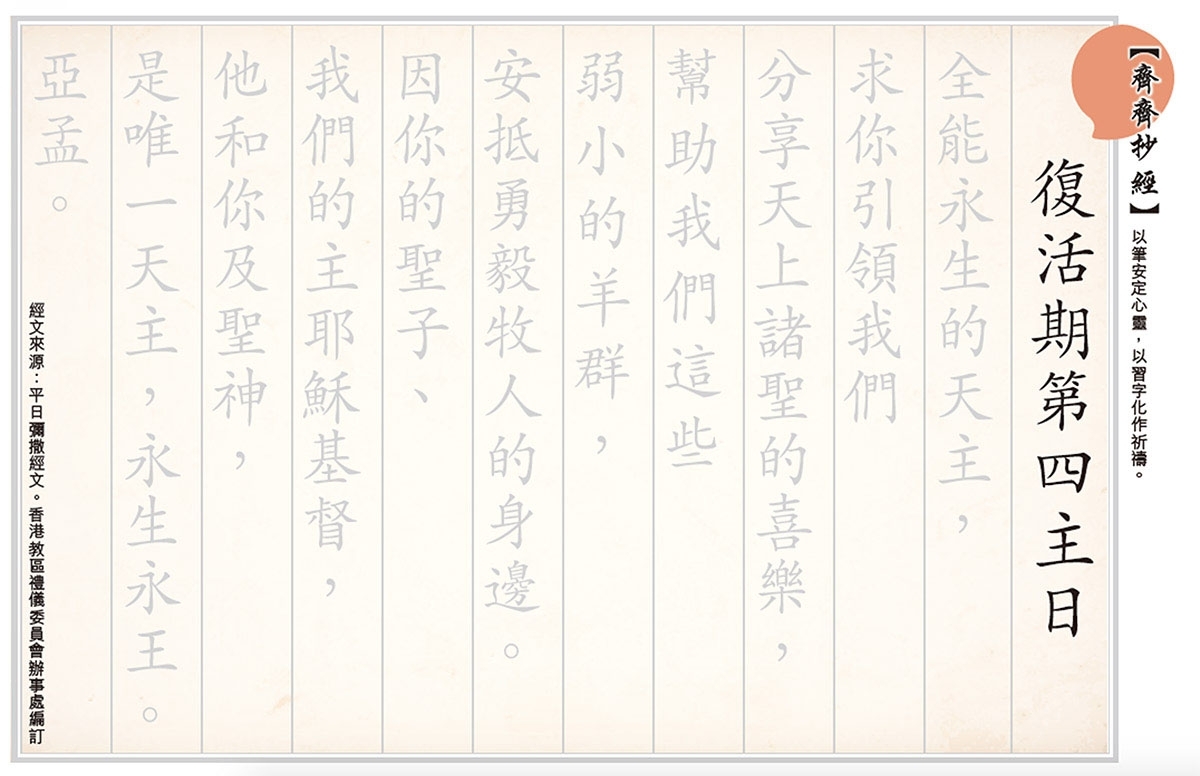 【齊齊抄經】以筆安定心靈，以習字化作祈禱。
復活期第四主日
全能永生的天主，
求你引領我們
分享天上諸聖的喜樂，
幫助我們這些
弱小的羊群，
安抵勇毅牧人的身邊。
因你的聖子、
我們的主耶穌基督，
他和你及聖神，
是唯一天主，永生永王。
亞孟。
經文來源：平日彌撒經文。香港教區禮儀委員會辦事處編訂